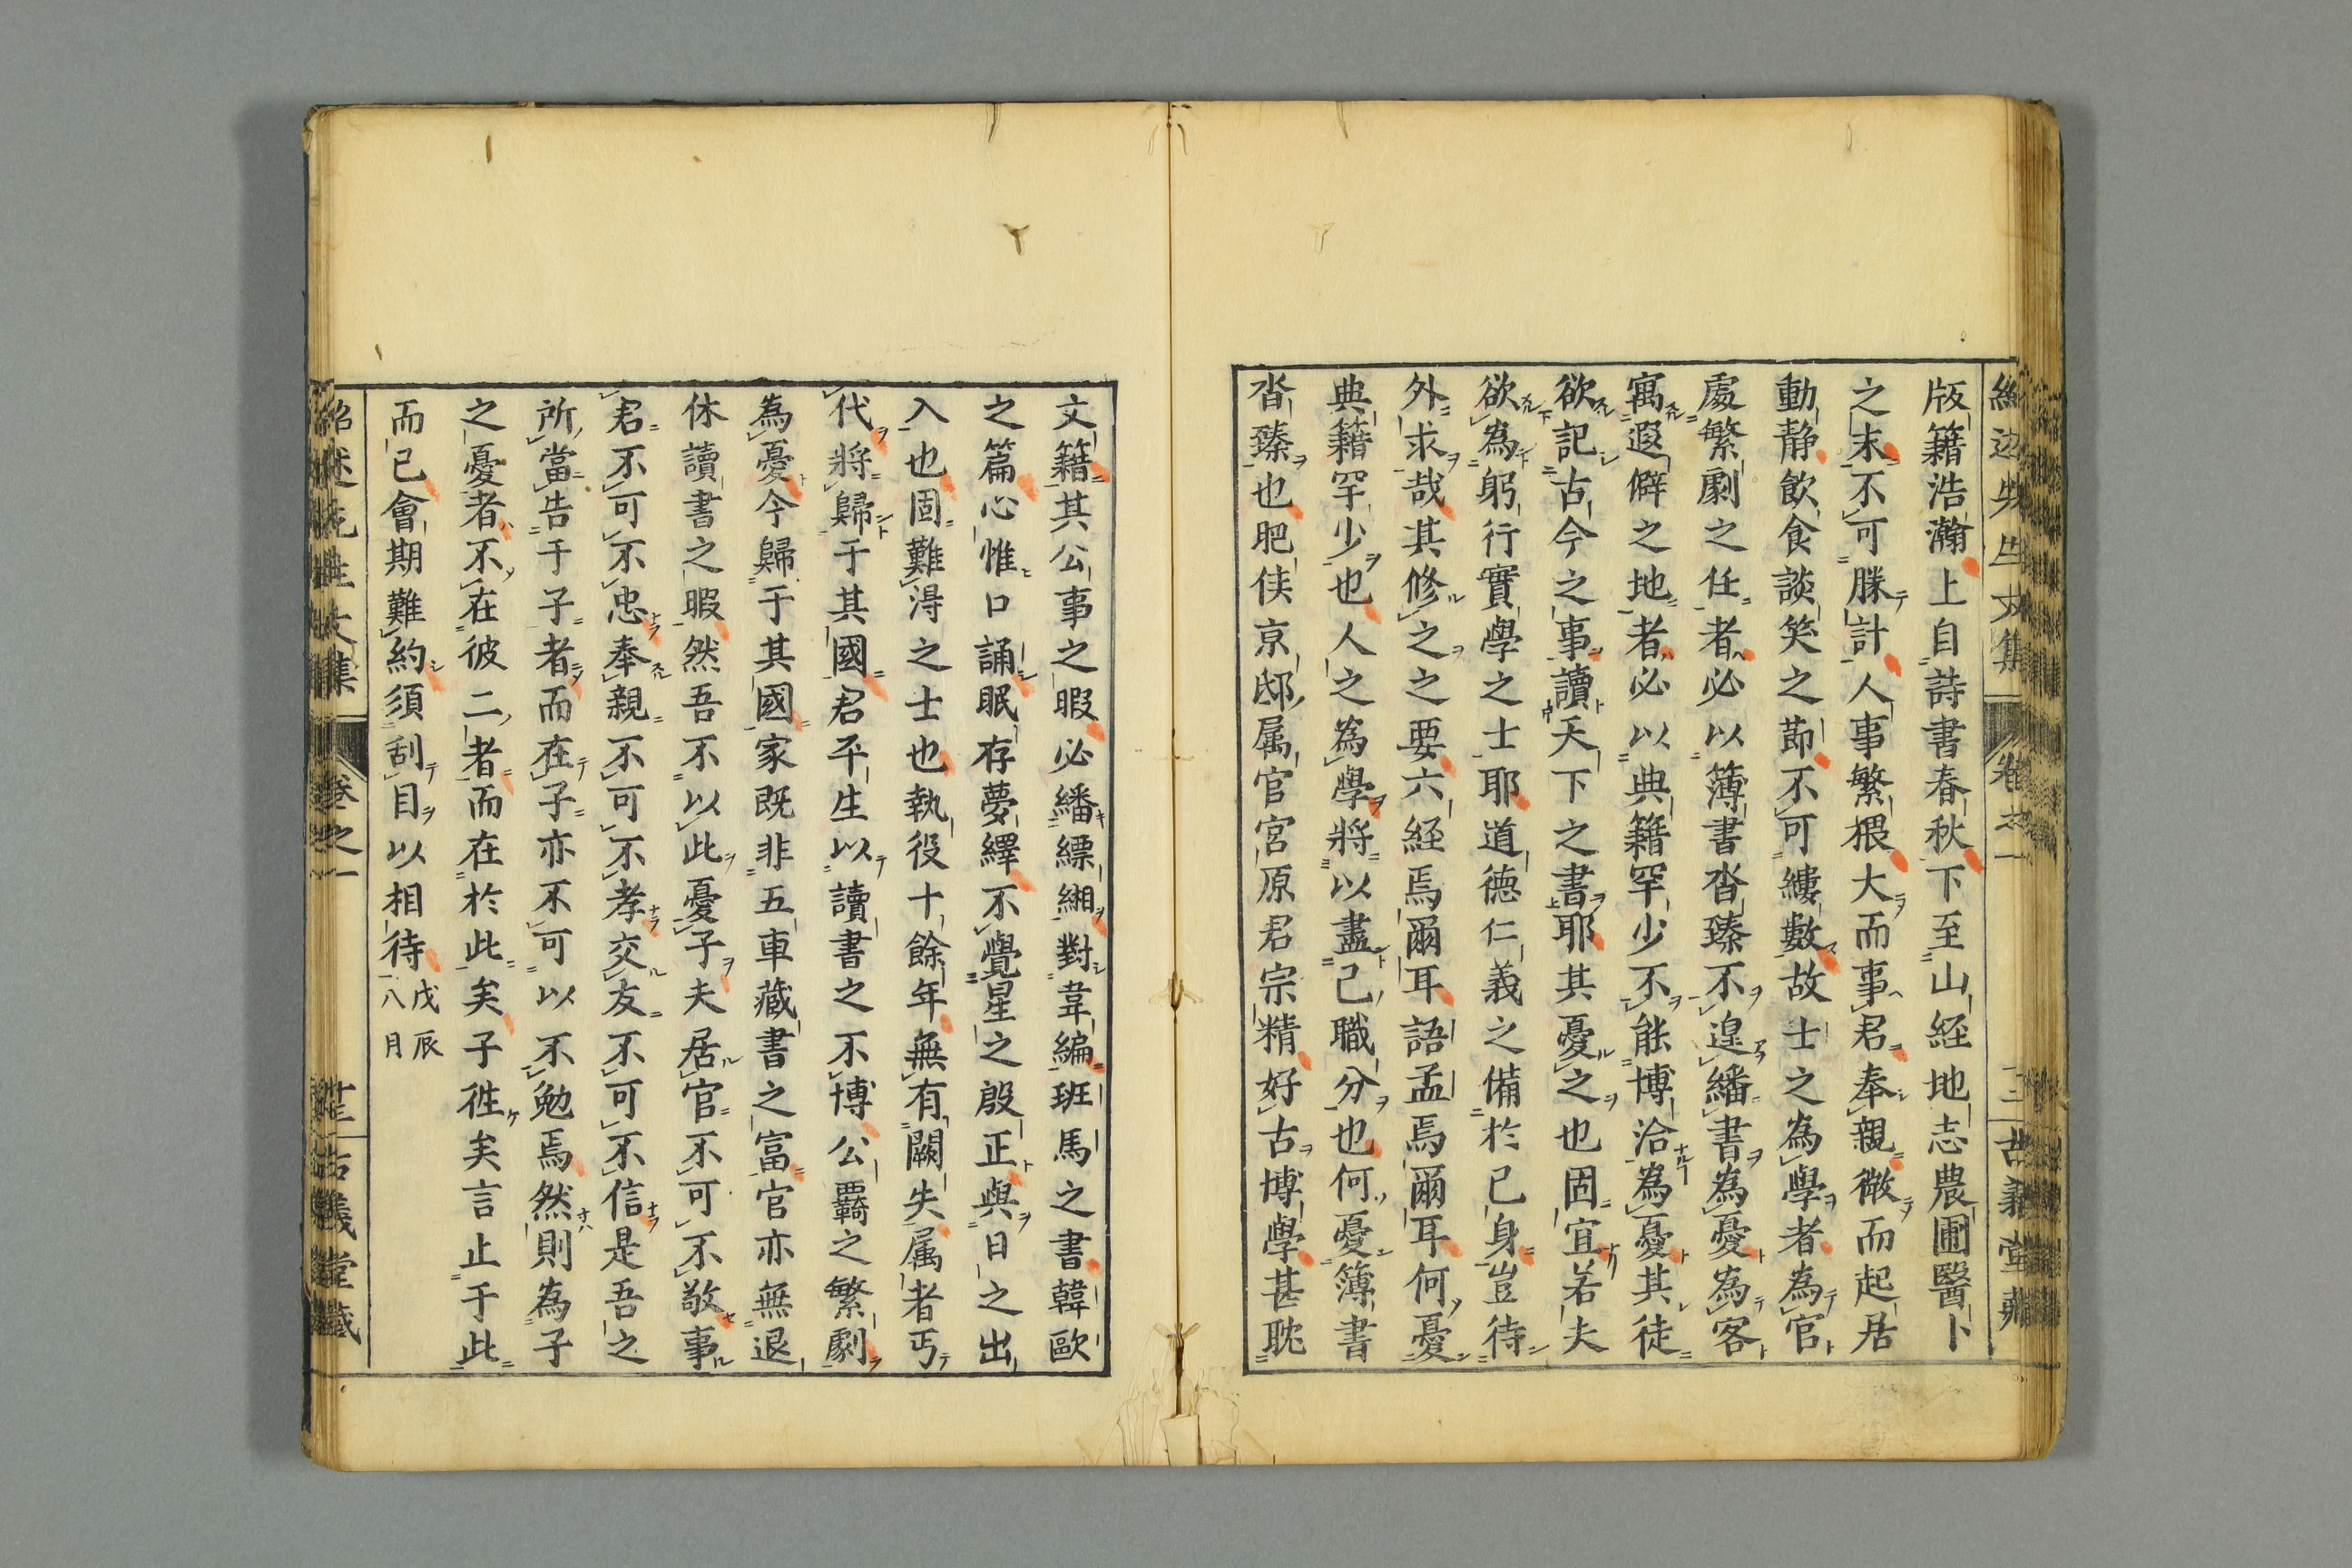 版籍浩瀚上自詩書春秋下至山経地志農圃醫卜
之末不可勝計人事繁猥大而事君奉親微而起居
動静飲食談笑之節不可縷數故士之為學者為官
處繁劇之任者必以簿書沓臻不遑繙書為憂為客
寓遐僻之地者必以典籍罕少不能博洽為憂其徒
欲記古今之事讀天下之書耶其憂之也固宜若夫
欲為躬行實學之士耶道德仁義之備於己身豈待
外求哉其修之之要六経焉爾耳語孟焉爾耳何憂
典籍罕少也人之為學將以盡己職分也何憂簿書
沓臻也肥侯京邸属官宮原君宗精好古博學甚耽
文籍其公事之暇必繙縹緗對韋編班馬之書韓歐
之篇心惟口誦眠存夢繹不覺星之殷正與日之出
入也固難淂之士也執役十餘年無有闕失属者丐
代將歸于其國君平生以讀書之不博公覊之繁劇
為憂今歸于其國家既非五車藏書之富官亦無退
休讀書之暇然吾不以此憂子夫居官不可不敬事
君不可不忠奉親不可不孝交友不可不信是吾之
所當告于子者而在子亦不可以不勉焉然則為子
之憂者不在彼二者而在於此矣子徃矣言止于此
而已會期難約須刮目以相待 戊辰八月
紹述先生文集 卷之一 十三 古義堂藏